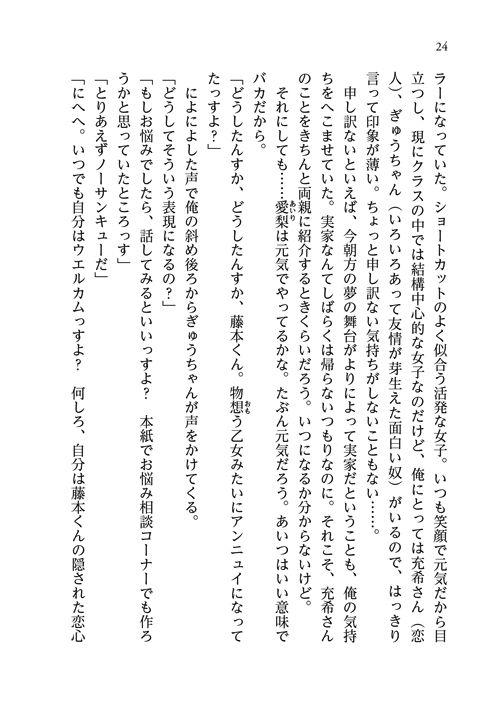 24
ラーになっていた。ショートカットのよく似合う活発な女子。いつも笑顔で元気だから目
立つし、現にクラスの中では結構中心的な女子なのだけど、俺にとっては充希さん（恋
人）、ぎゅうちゃん（いろいろあって友情が芽生えた面白い奴）がいるので、はっきり
言って印象が薄い。ちょっと申し訳ない気持ちがしないこともない……。
　申し訳ないといえば、今朝方の夢の舞台がよりによって実家だということも、俺の気持
ちをへこませていた。実家なんてしばらくは帰らないつもりなのに。それこそ、充希さん
のことをきちんと両親に紹介するときくらいだろう。いつになるか分からないけど。
　それにしても……愛梨（あいり）は元気でやってるかな。たぶん元気だろう。あいつはいい意味で
バカだから。
「どうしたんすか、どうしたんすか、藤本くん。物想（おも）う乙女みたいにアンニュイになって
たっすよ？」
　によによした声で俺の斜め後ろからぎゅうちゃんが声をかけてくる。
「どうしてそういう表現になるの？」
「もしお悩みでしたら、話してみるといいっすよ？　本紙でお悩み相談コーナーでも作ろ
うかと思っていたところっす」
「とりあえずノーサンキューだ」
「にへへ。いつでも自分はウエルカムっすよ？　何しろ、自分は藤本くんの隠された恋心